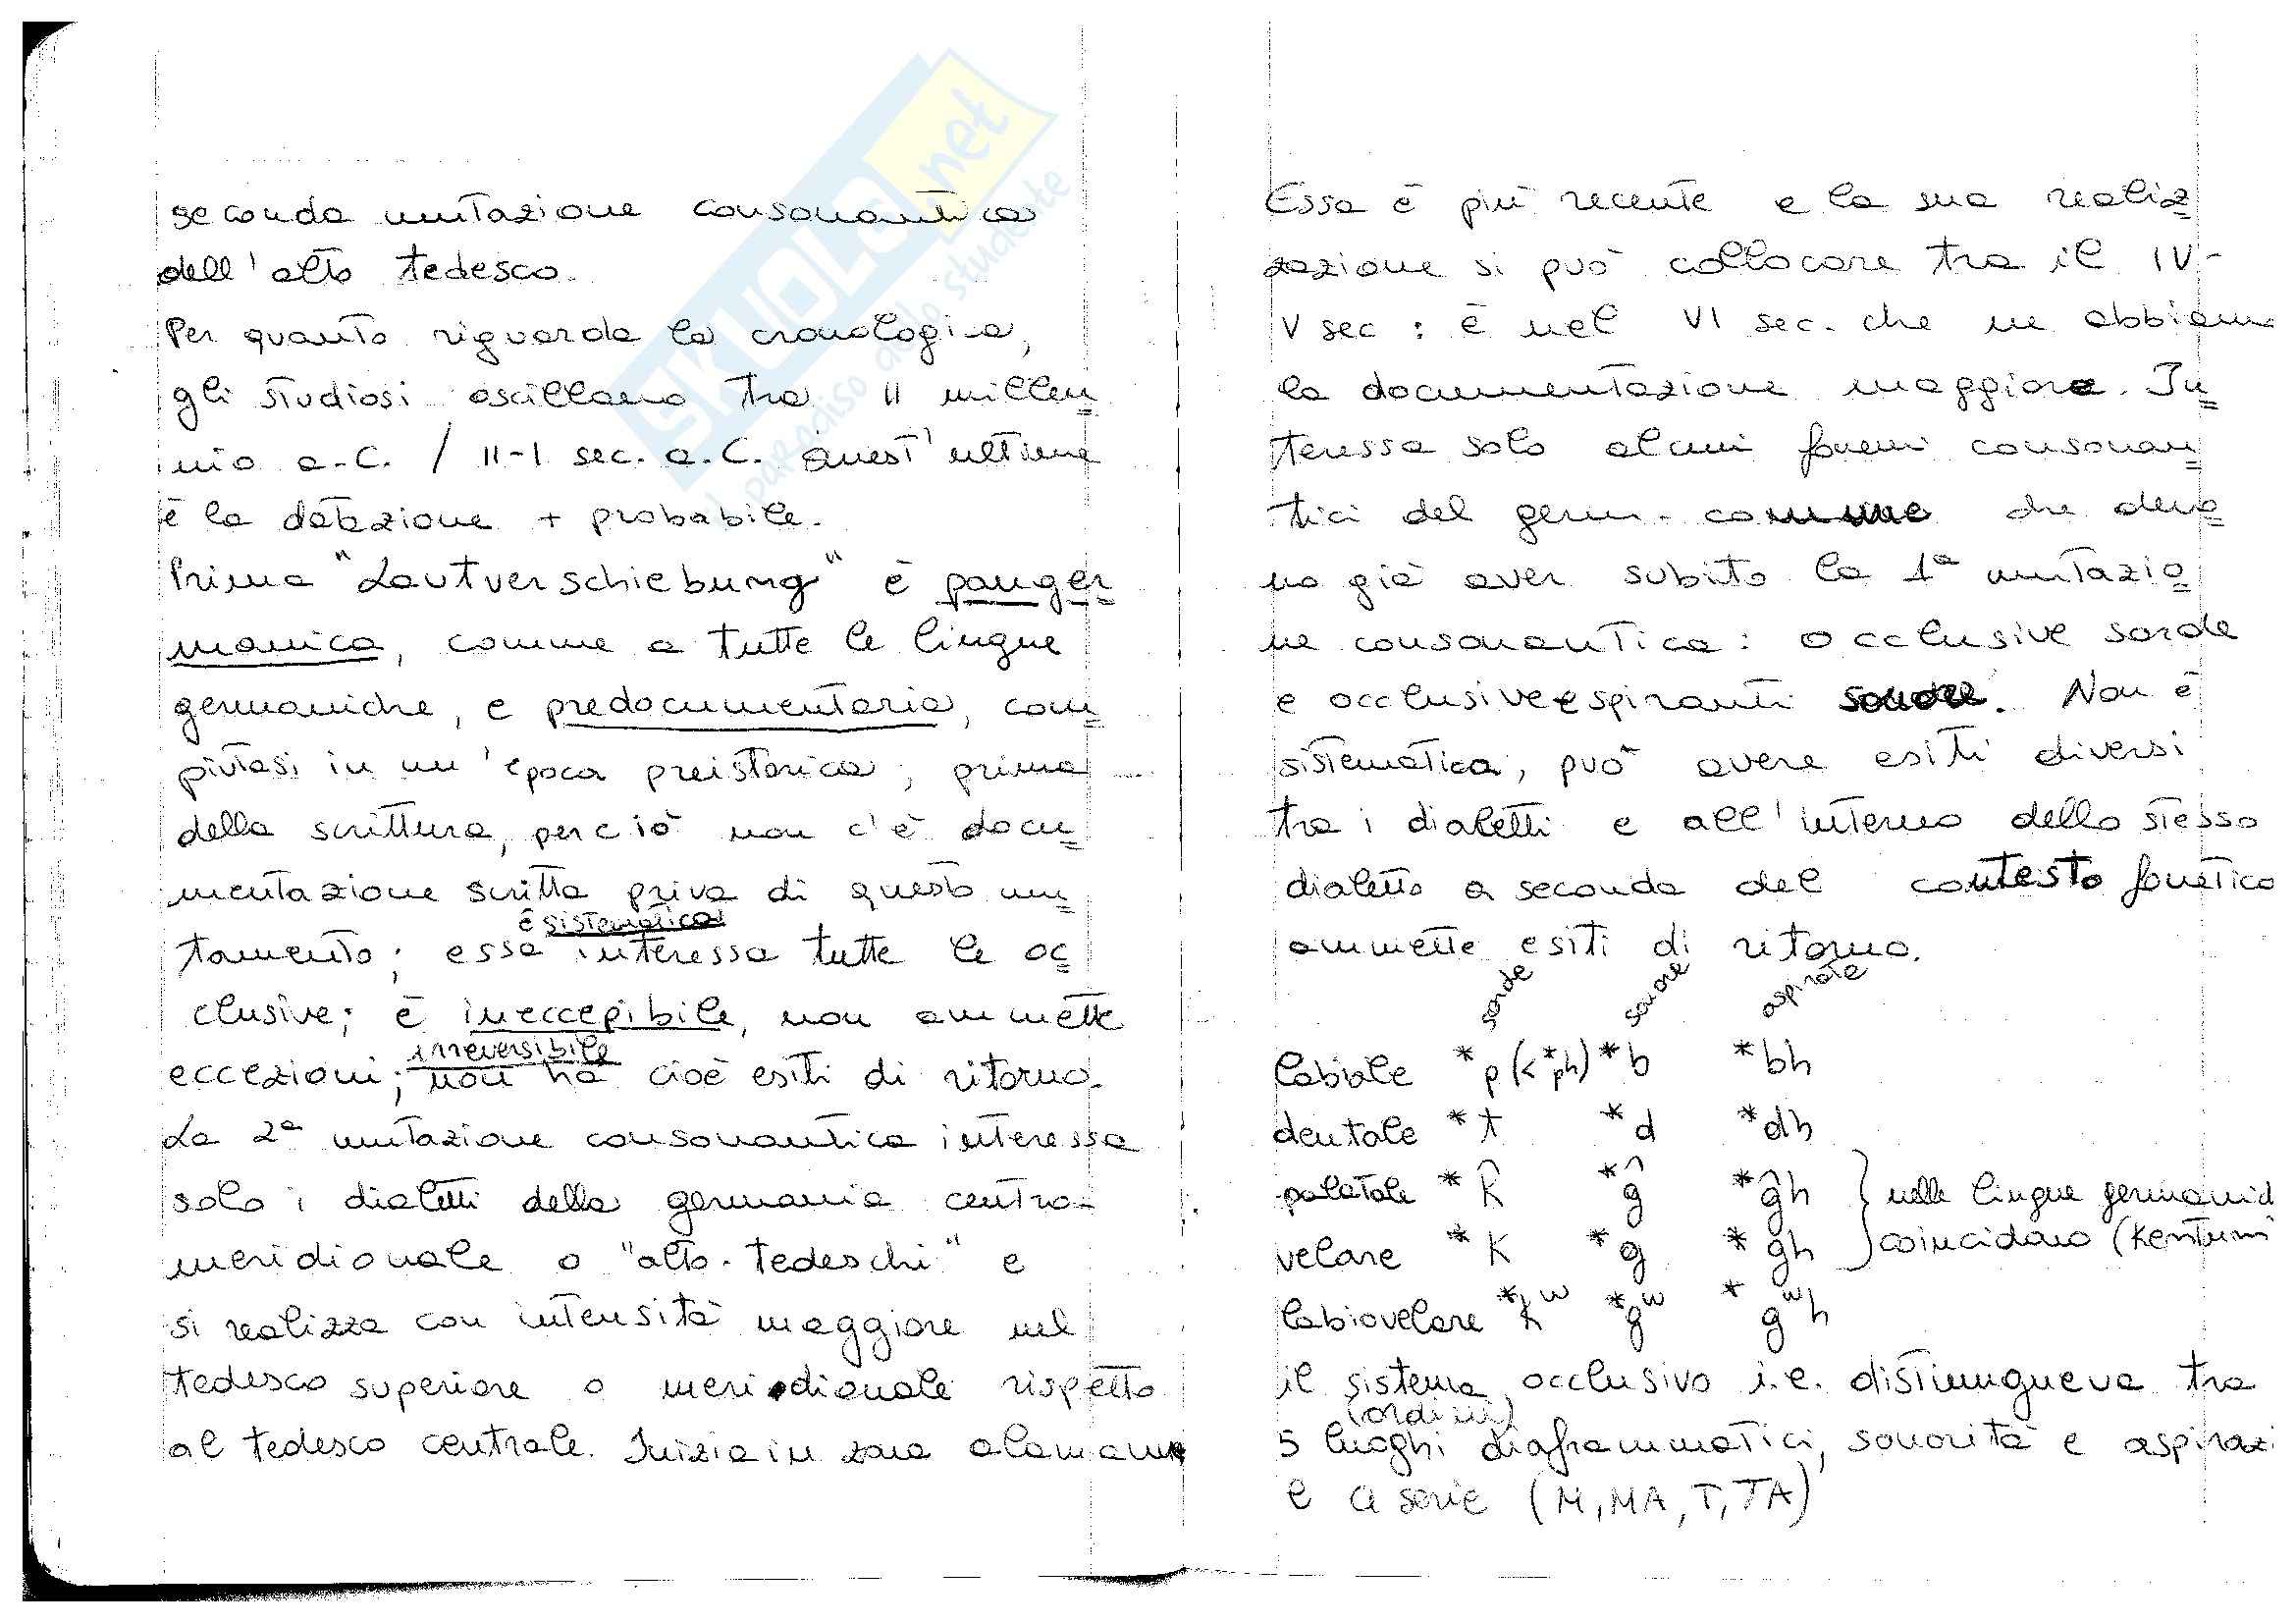 seconda mutazione consonantica
dell'alto tedesco.
Per quanto riguarda la cronologia,
gli studiosi oscillano tra II millen
nio a.C. / II-I sec. a.C. quest'ultima
è la datazione + probabile.
Prima "Lautverschiebung" è panger
manica, comune a tutte le lingue
germaniche, e predocumentaria, com
piutasi in un'epoca preistorica, prima
della scrittura, perciò non c'è docu
mentazione scritta priva di questo mu
è sistematica
tamento; essa interessa tutte le oc
clusive; è ineccepibile, non ammette
irreversibile
eccezioni; non ha cioè esiti di ritorno.
La 2ª mutazione consonantica interessa
solo i dialetti della germania centro-
meridionale o "alto-tedeschi" e
si realizza con intensità maggiore nel
tedesco superiore o meridionale rispetto
al tedesco centrale. Inizia in zona alamann
Essa è più recente e la sua realiz
zazione si può collocare tra il IV-
V sec: è nel VI sec. che ne abbiam
la documentazione maggiore. In
teressa solo alcuni fonemi consonan
tici del germ. comune che devo
no già aver subito la 1ª mutazio
ne consonantica: occlusive sorde
e occlusive e spiranti Non è
sistematica, può avere esiti diversi
tra i dialetti e all'interno dello stesso
dialetto a seconda del contesto fonetico
ammette esiti di ritorno.
sorde sonore aspirate
labiale *p(<*ph) *b *bh
dentale *t *d *dh
palatale *k̂ *ĝ *ĝh } nelle lingue germanich
velare *k *g *gh } coincidono (kentum
labiovelare *kʷ *gʷ *gʷh
il sistema occlusivo i.e. distingueva tra
(ordini)
5 luoghi diaframmatici, sonorità e aspirazi
e 4 serie (M, MA, T, TA)
SKUOLA.net
il paradiso dello studente